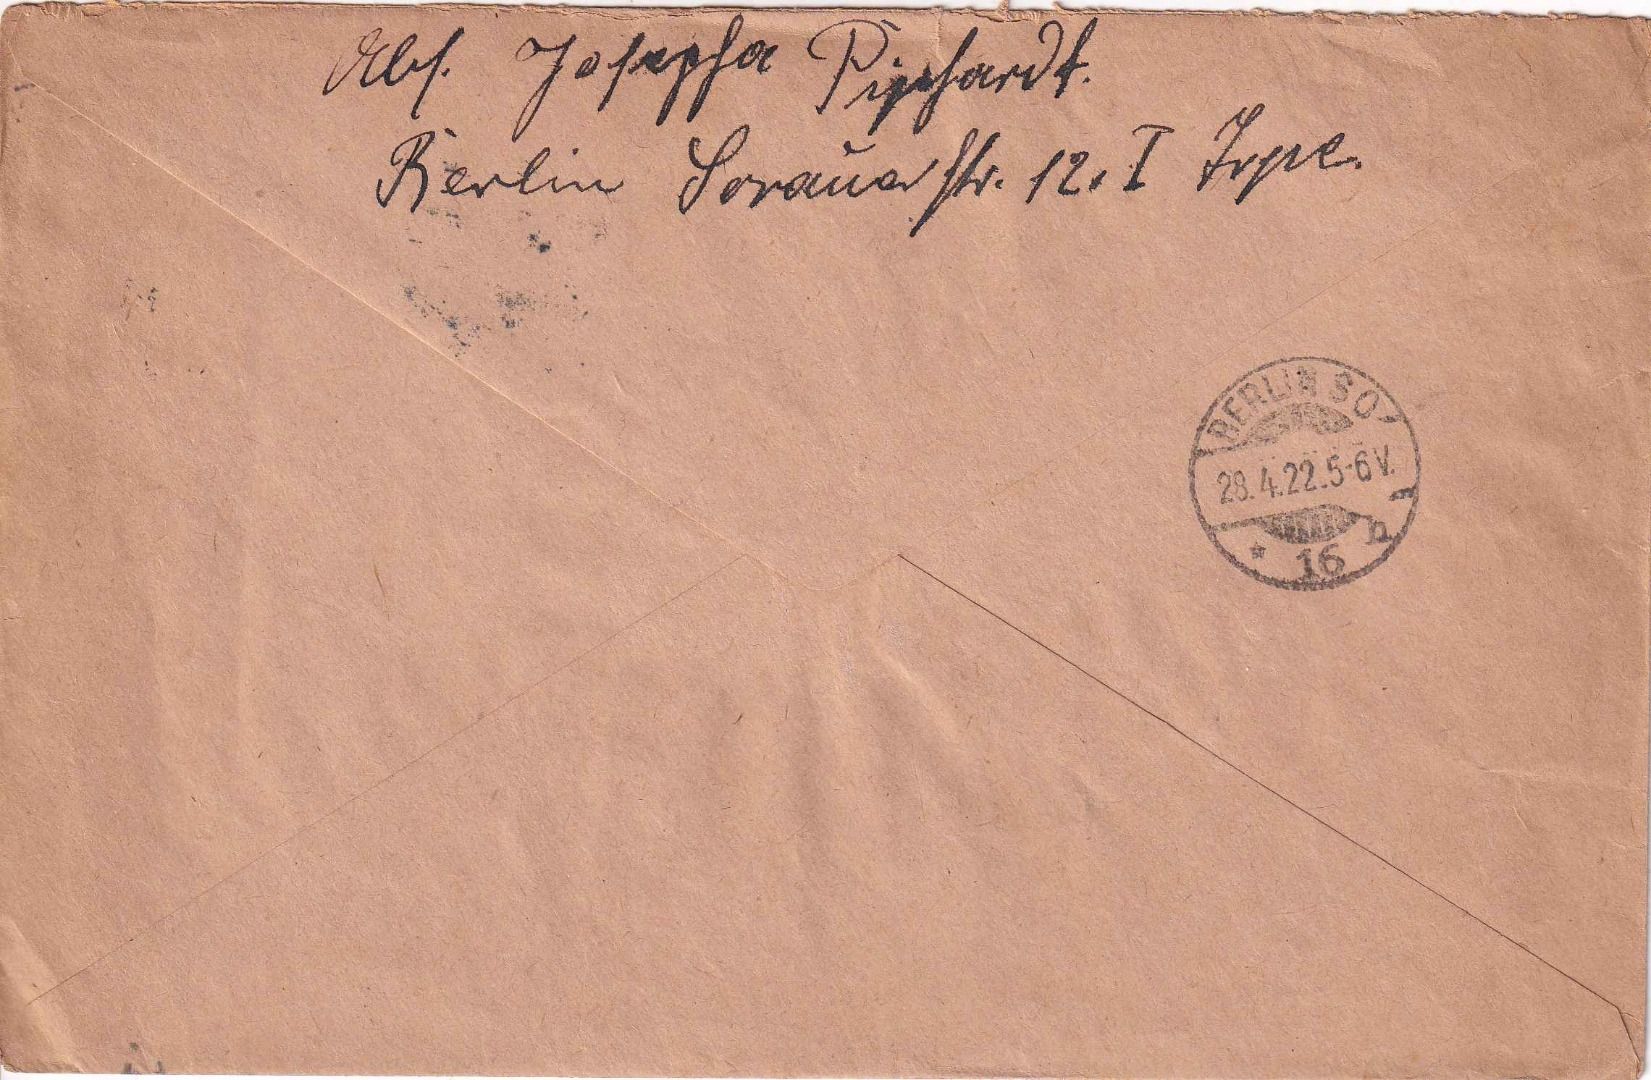 Abs. Josepha Piephardt.
Berlin Sorauer str. 12. I Trpe.
BERLIN SO
28.4.22.5-6 V.
* 16 n